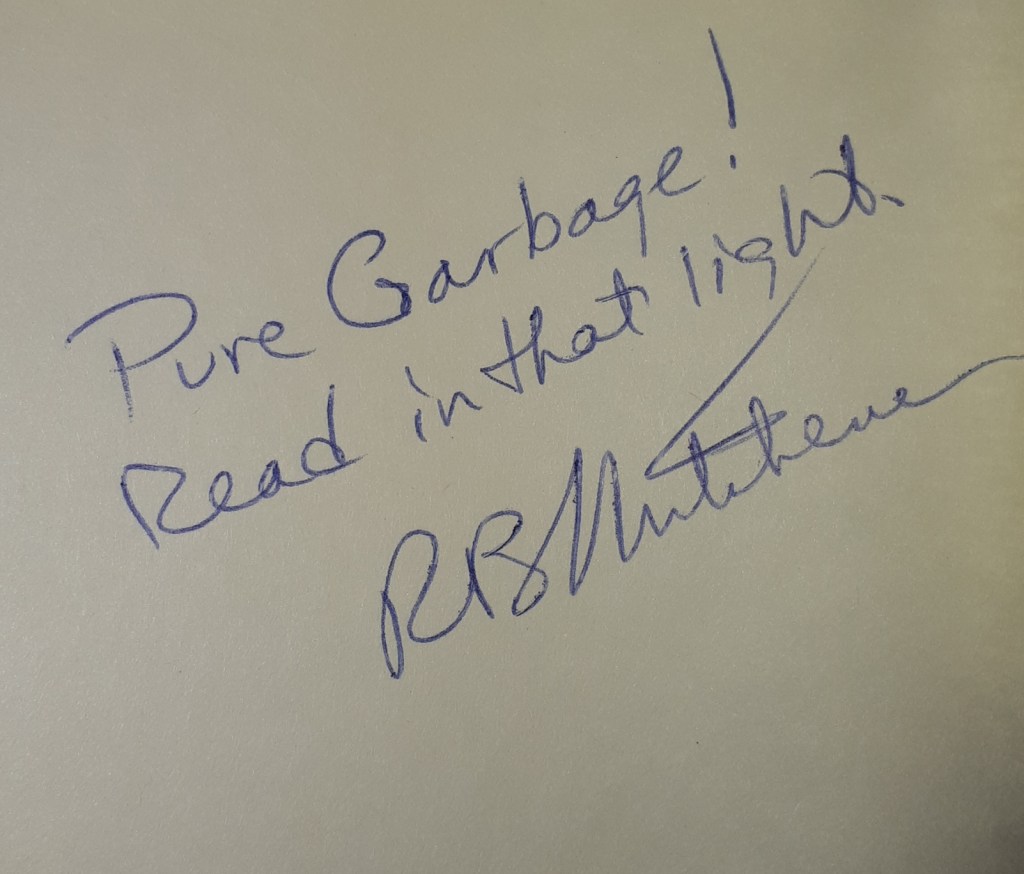 Pure Garbage!
Read in that light.
RB